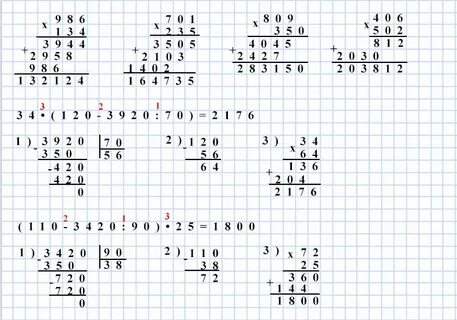 986
x 134
3944
+ 2958
986
132124
701
x 235
3505
+ 2103
1402
164735
809
x 350
4045
+ 2427
283150
406
x 502
812
+ 2030
203812
3 2 1
34•(120-3920:70)=2176
1) -3920 |70
350 56
-420
420
0
2) -120
56
64
3) x 34
64
136
+ 204
2176
2 1 3
(110-3420:90)•25=1800
1) -3420 |90
350 38
-720
720
0
2) -110
38
72
3) x 72
25
360
+ 144
1800